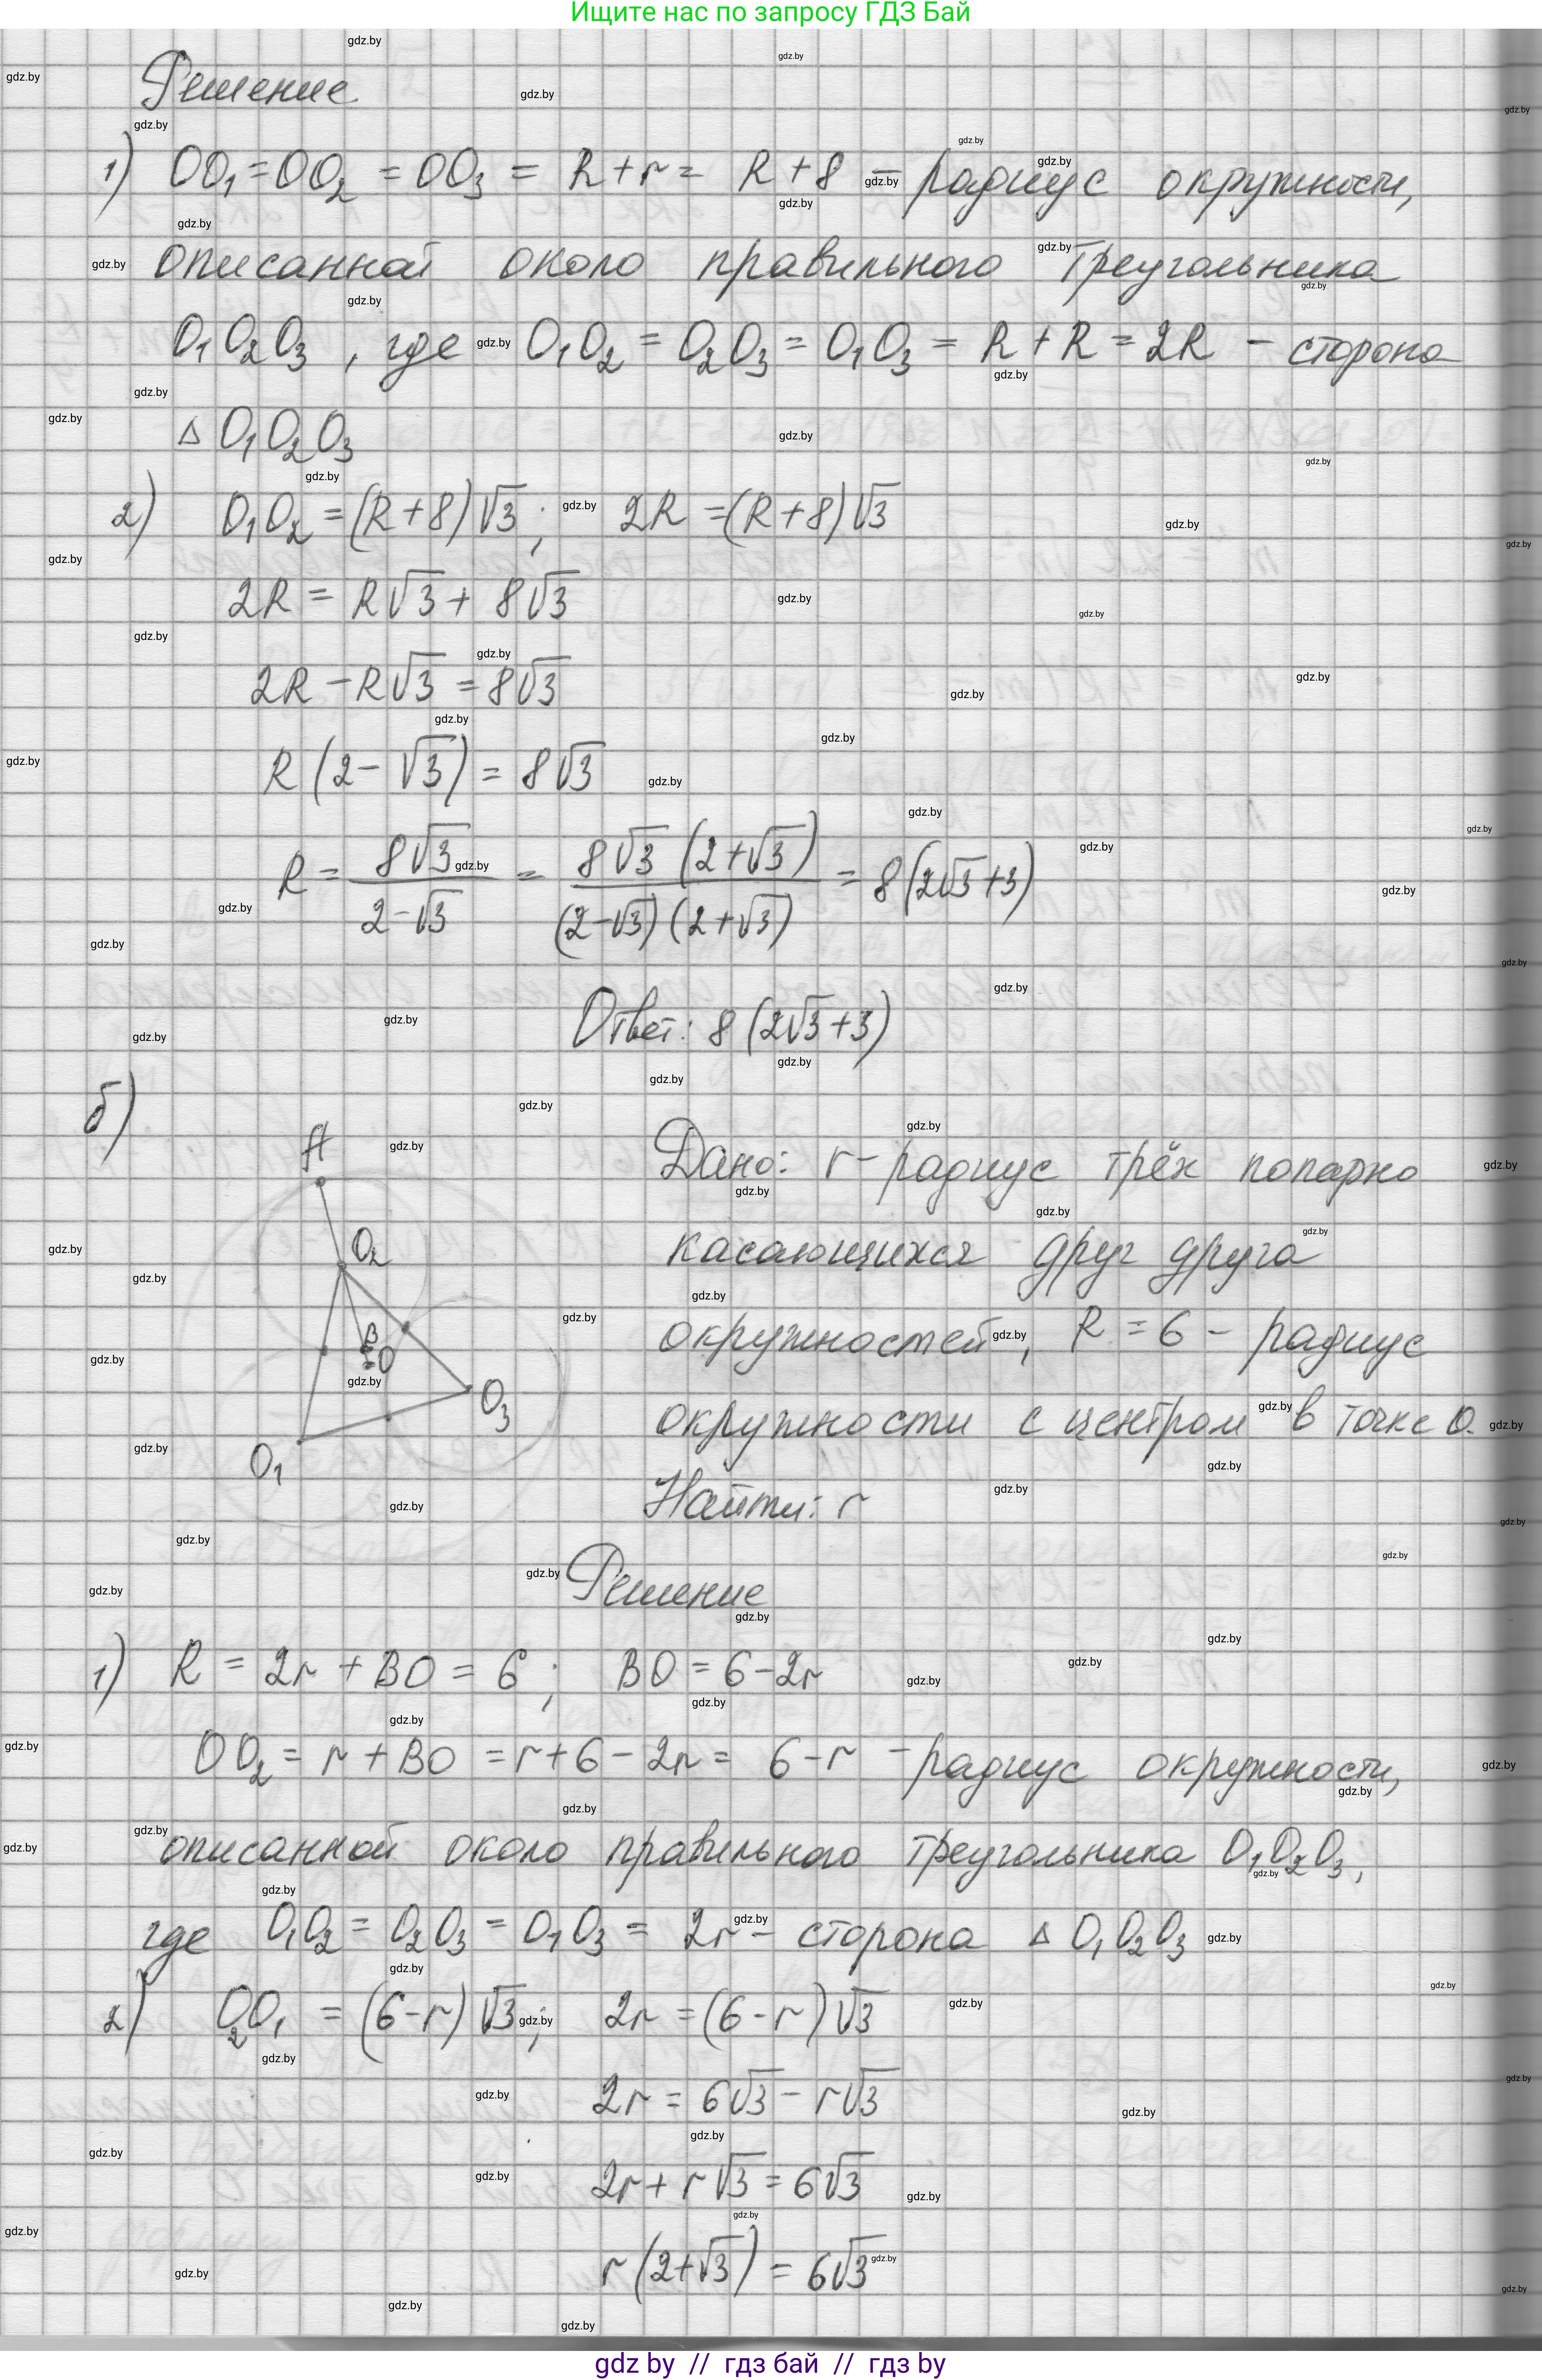 Ищите нас по запросу ГДЗ Бай
Решение
1) OO₁ = OO₂ = OO₃ = R + r = R + 8 – радиус окружности,
описанной около правильного треугольника
O₁O₂O₃, где O₁O₂ = O₂O₃ = O₁O₃ = R + R = 2R – сторона
△ O₁O₂O₃
2) O₁O₂ = (R+8)√3; 2R = (R+8)√3
2R = R√3 + 8√3
2R – R√3 = 8√3
R(2 – √3) = 8√3
R = 8√3/(2–√3) = 8√3(2+√3)/((2–√3)(2+√3)) = 8(2√3+3)
Ответ: 8(2√3+3)
б)
A
O₂
B
O
O₃
O₁
Дано: r – радиус трёх попарно
касающихся друг друга
окружностей, R = 6 – радиус
окружности с центром в точке O.
Найти: r
Решение
1) R = 2r + BO = 6; BO = 6 – 2r
OO₂ = r + BO = r + 6 – 2r = 6 – r – радиус окружности,
описанной около правильного треугольника O₁O₂O₃,
где O₁O₂ = O₂O₃ = O₁O₃ = 2r – сторона △ O₁O₂O₃
2) O₂O₁ = (6–r)√3; 2r = (6–r)√3
2r = 6√3 – r√3
2r + r√3 = 6√3
r(2+√3) = 6√3
gdz by // гдз бай // гдз by